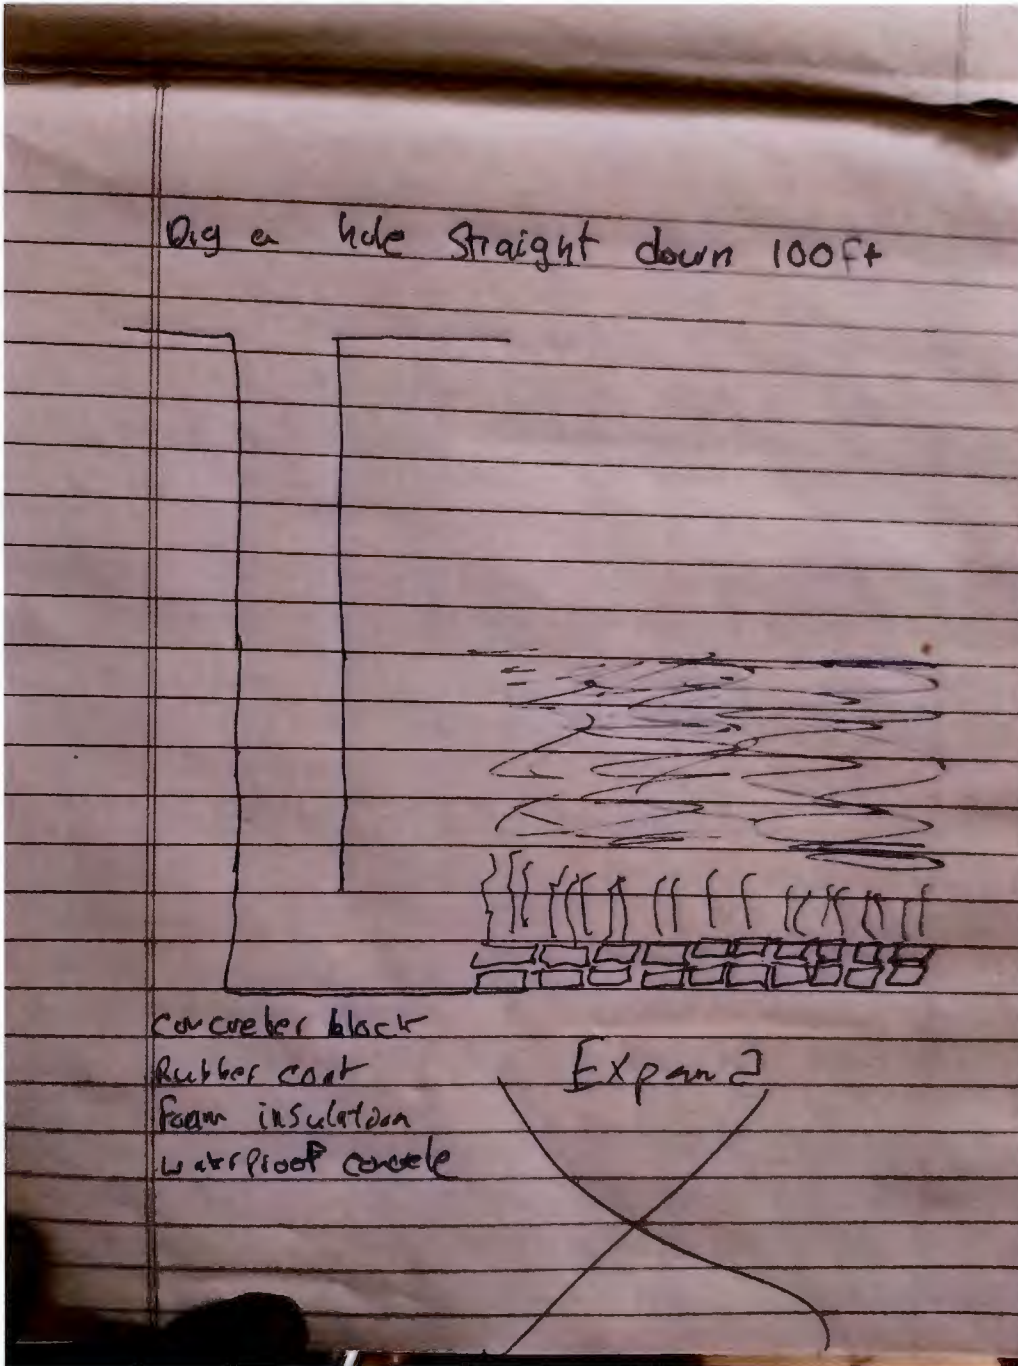 Dig a hole Straight down 100ft
concreter block
Rubber coat
foam insulation
waterproof concrete
Expand